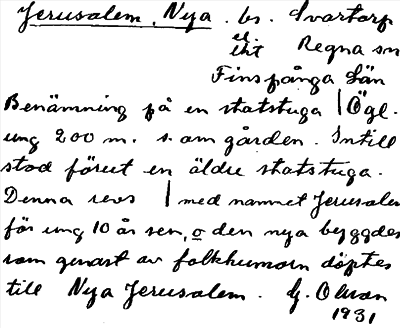 Jerusalem, Nya. bs. Svartorp
el. eht Regna sn
Finspånga län
Benämning på en statstuga | Ögl.
ung 200 m. s. om gården. Intill
stod förut en äldre statstuga.
Denna revs | med namnet Jerusalem
för ung 10 år sen, o den nya byggdes
som genast av folkhumorn döptes
till Nya Jerusalem. G. Olson
1931